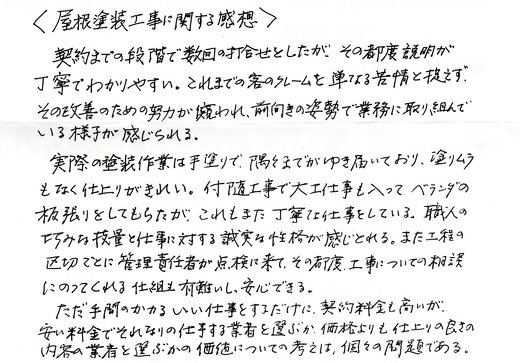 〈屋根塗装工事に関する感想〉
契約までの段階で数回の打合せをしたが、その都度説明が
丁寧でわかりやすい。これまでの客のクレームを単なる苦情と捉えず、
その改善のための努力が窺われ、前向きの姿勢で業務に取り組んで
いる様子が感じられる。
実際の塗装作業は手塗りで、隅々までがゆき届いており、塗りムラ
もなく仕上りがきれい。付随工事で大工仕事も入って ベランダの
板張りをしてもらたが、これもまた丁寧な仕事をしている。職人の
巧みな技量と仕事に対する誠実な性格が感じとれる。また工程の
区切ごとに管理責任者が点検に来て、その都度、工事についての相談
にのってくれる仕組も有難いし、安心できる。
ただ手間のかかるいい仕事をするだけに、契約料金も高いが、
安い料金でそれなりの仕事する業者を選ぶか、価格よりも仕上りの良さの
内容の業者を選ぶかの価値についての考えは、個々の問題である。